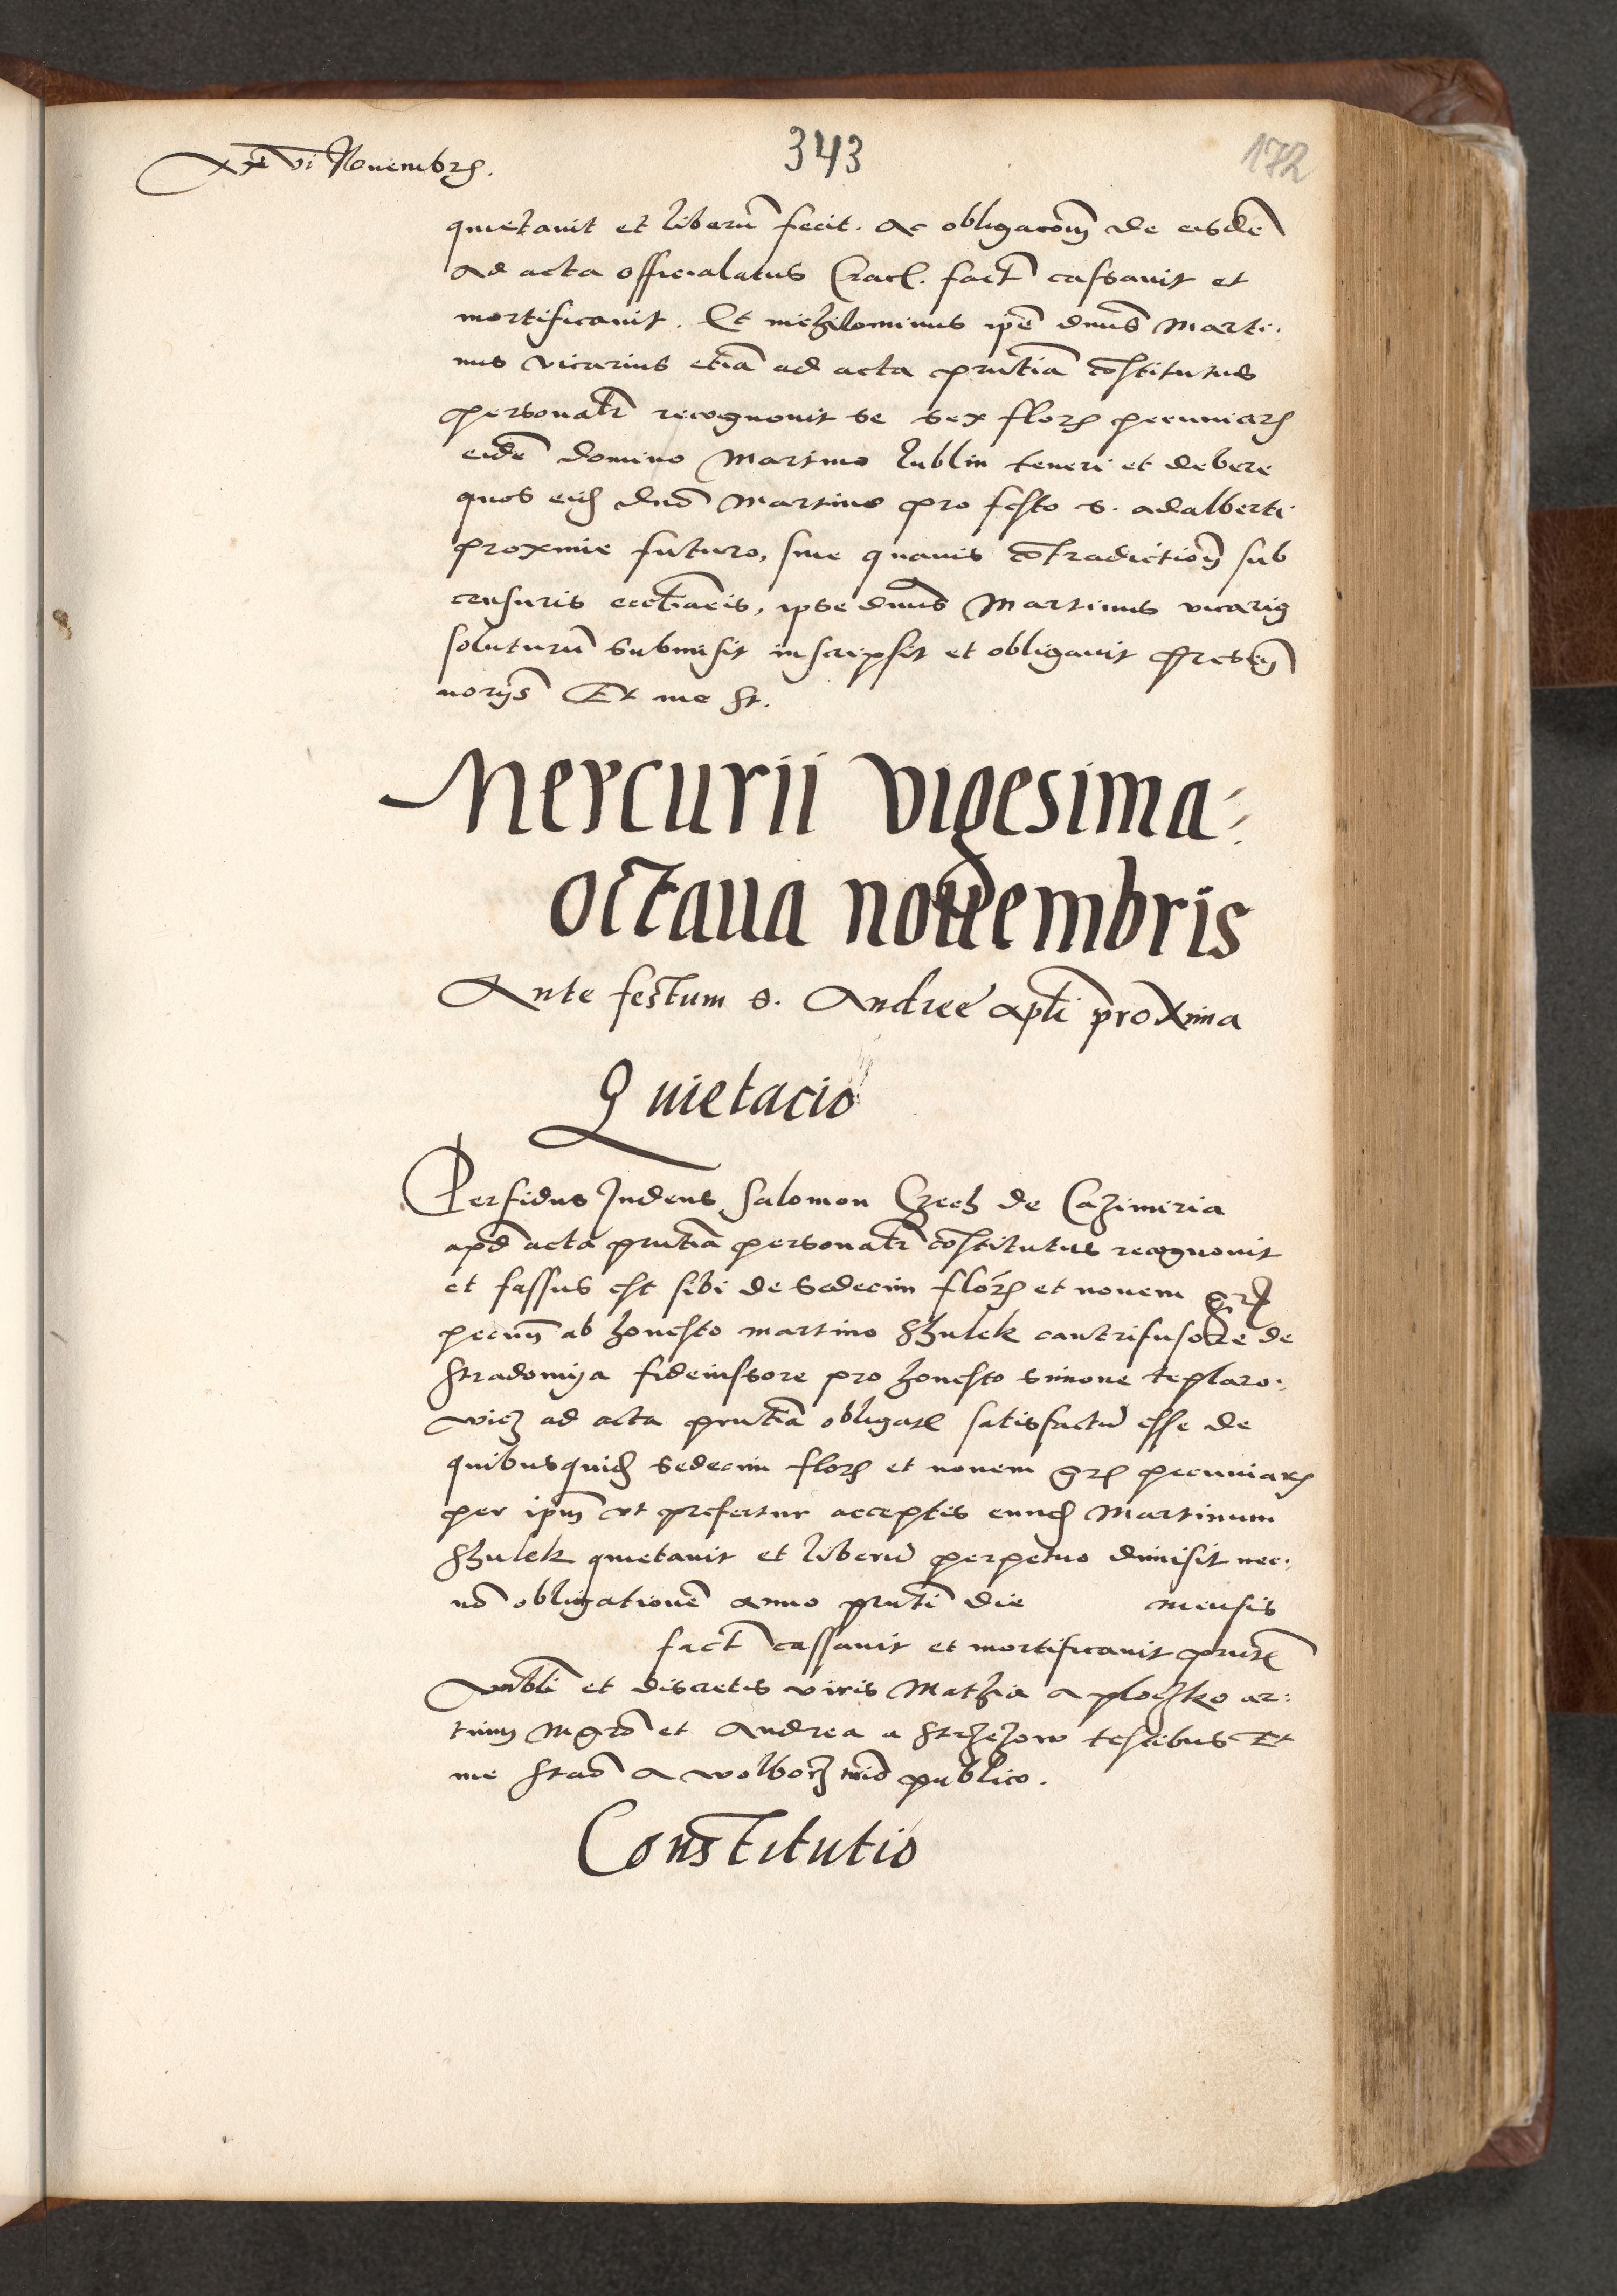 xxvi Nouembrs.
343
172
quietauit et liberu fecit. ac obligacom de eisde
ad acta officialatus Crac. fact cassauit et
mortificauit. Et nichilominus ipe dnus Marti:
nus vicarius etia ad acta pntia costitutus
personalr recognouit se sex flor pecuniar
eide domino Martino lublin teneri et debere
quos eid dno Martino pro festo s. adalberti
proxime futuro, sine quauis cotradiction sub
censuris ecctiacis, ipse dnus Martinus vicari9
soluturu submisit inscripsit et obligauit
norijs Et me St.
Mercurii vigesima
octaua nouembris
Ante festum s. Andree apli proxima
Quietacio
Perfidus Judeus Salomon Czech de Cazimiria
apd acta pntia personalr costitutus recognouit
et fassus est sibi de sedecim flor et nouem gr
pecun ab honesto martino Shulek cantrifusore de
Stradomya fideiussore pro honesto simone teplaro:
wicz ad acta pntia obligat satisfactu esse de
quibusquid sedecim flor et nouem gr pecuniar
per ipm vt prefertur acceptis eund Martinum
Shulek quietauit et liberu perpetuo dimisit nec:
no obligatione anno pnti die mensis
fact cassauit et mortificauit pntib
et discretis viris Mathia a ploczko ar:
tium Mgro et Andrea a Strzezow testibus Et
me Stao a wolborz nrio publico.
Constitutio